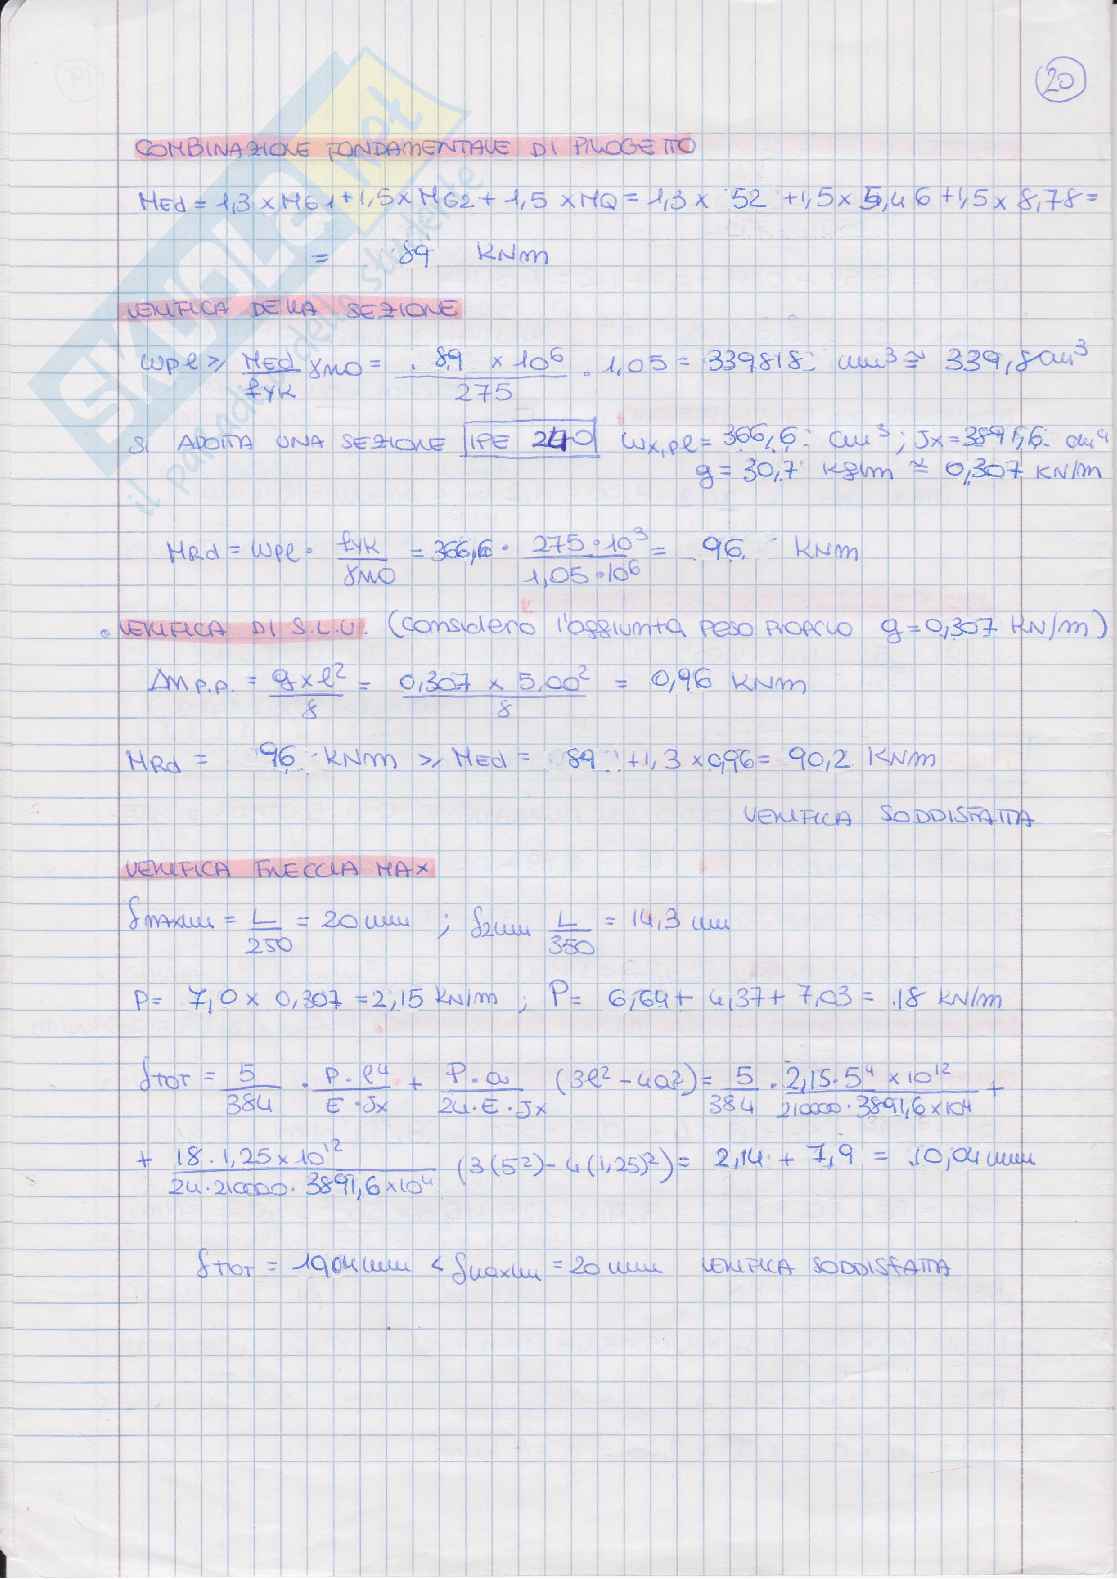 20
COMBINAZIONE FONDAMENTALE DI PROGETTO
MEd = 1,3 x MG1 + 1,5 x MG2 + 1,5 x MQ = 1,3 x 52 + 1,5 x 5,46 + 1,5 x 8,78 =
= 89 KNm
VERIFICA DELLA SEZIONE
Wpl ≥ MEd/fyk γM0 = 89 x 10^6/275 · 1,05 = 339818 mm³ ≅ 339,8 cm³
SI ADOTTA UNA SEZIONE IPE 240 Wx,pl = 366,6 cm³ ; Jx = 3891,6 cm⁴
g = 30,7 kg/m ≅ 0,307 KN/m
MRd = Wpl · fyk/γM0 = 366,6 · 275·10³/1,05·10⁶ = 96 KNm
• VERIFICA DI S.L.U. (considero l'aggiunta peso proprio g = 0,307 KN/m)
ΔM p.p. = g x l²/8 = 0,307 x 5,00²/8 = 0,96 KNm
MRd = 96 KNm ≥ MEd = 89 + 1,3 x 0,96 = 90,2 KNm
VERIFICA SODDISFATTA
VERIFICA FRECCIA MAX
δmaxlim = L/250 = 20 mm ; δ2lim L/350 = 14,3 mm
p = 7,0 x 0,307 = 2,15 KN/m ; P = 6,64 + 4,37 + 7,03 = 18 KN/m
δTOT = 5/384 · p·l⁴/E·Jx + P·a/24·E·Jx (3l² - 4a²) = 5/384 · 2,15·5⁴ x 10¹²/210000·3891,6 x 10⁴ +
+ 18·1,25 x 10¹²/24·210000·3891,6 x 10⁴ (3(5²) - 4(1,25)²) = 2,14 + 7,9 = 10,04 mm
δTOT = 10,04 mm < δmaxlim = 20 mm VERIFICA SODDISFATTA
SKUOLA.net
il paradiso dello studente